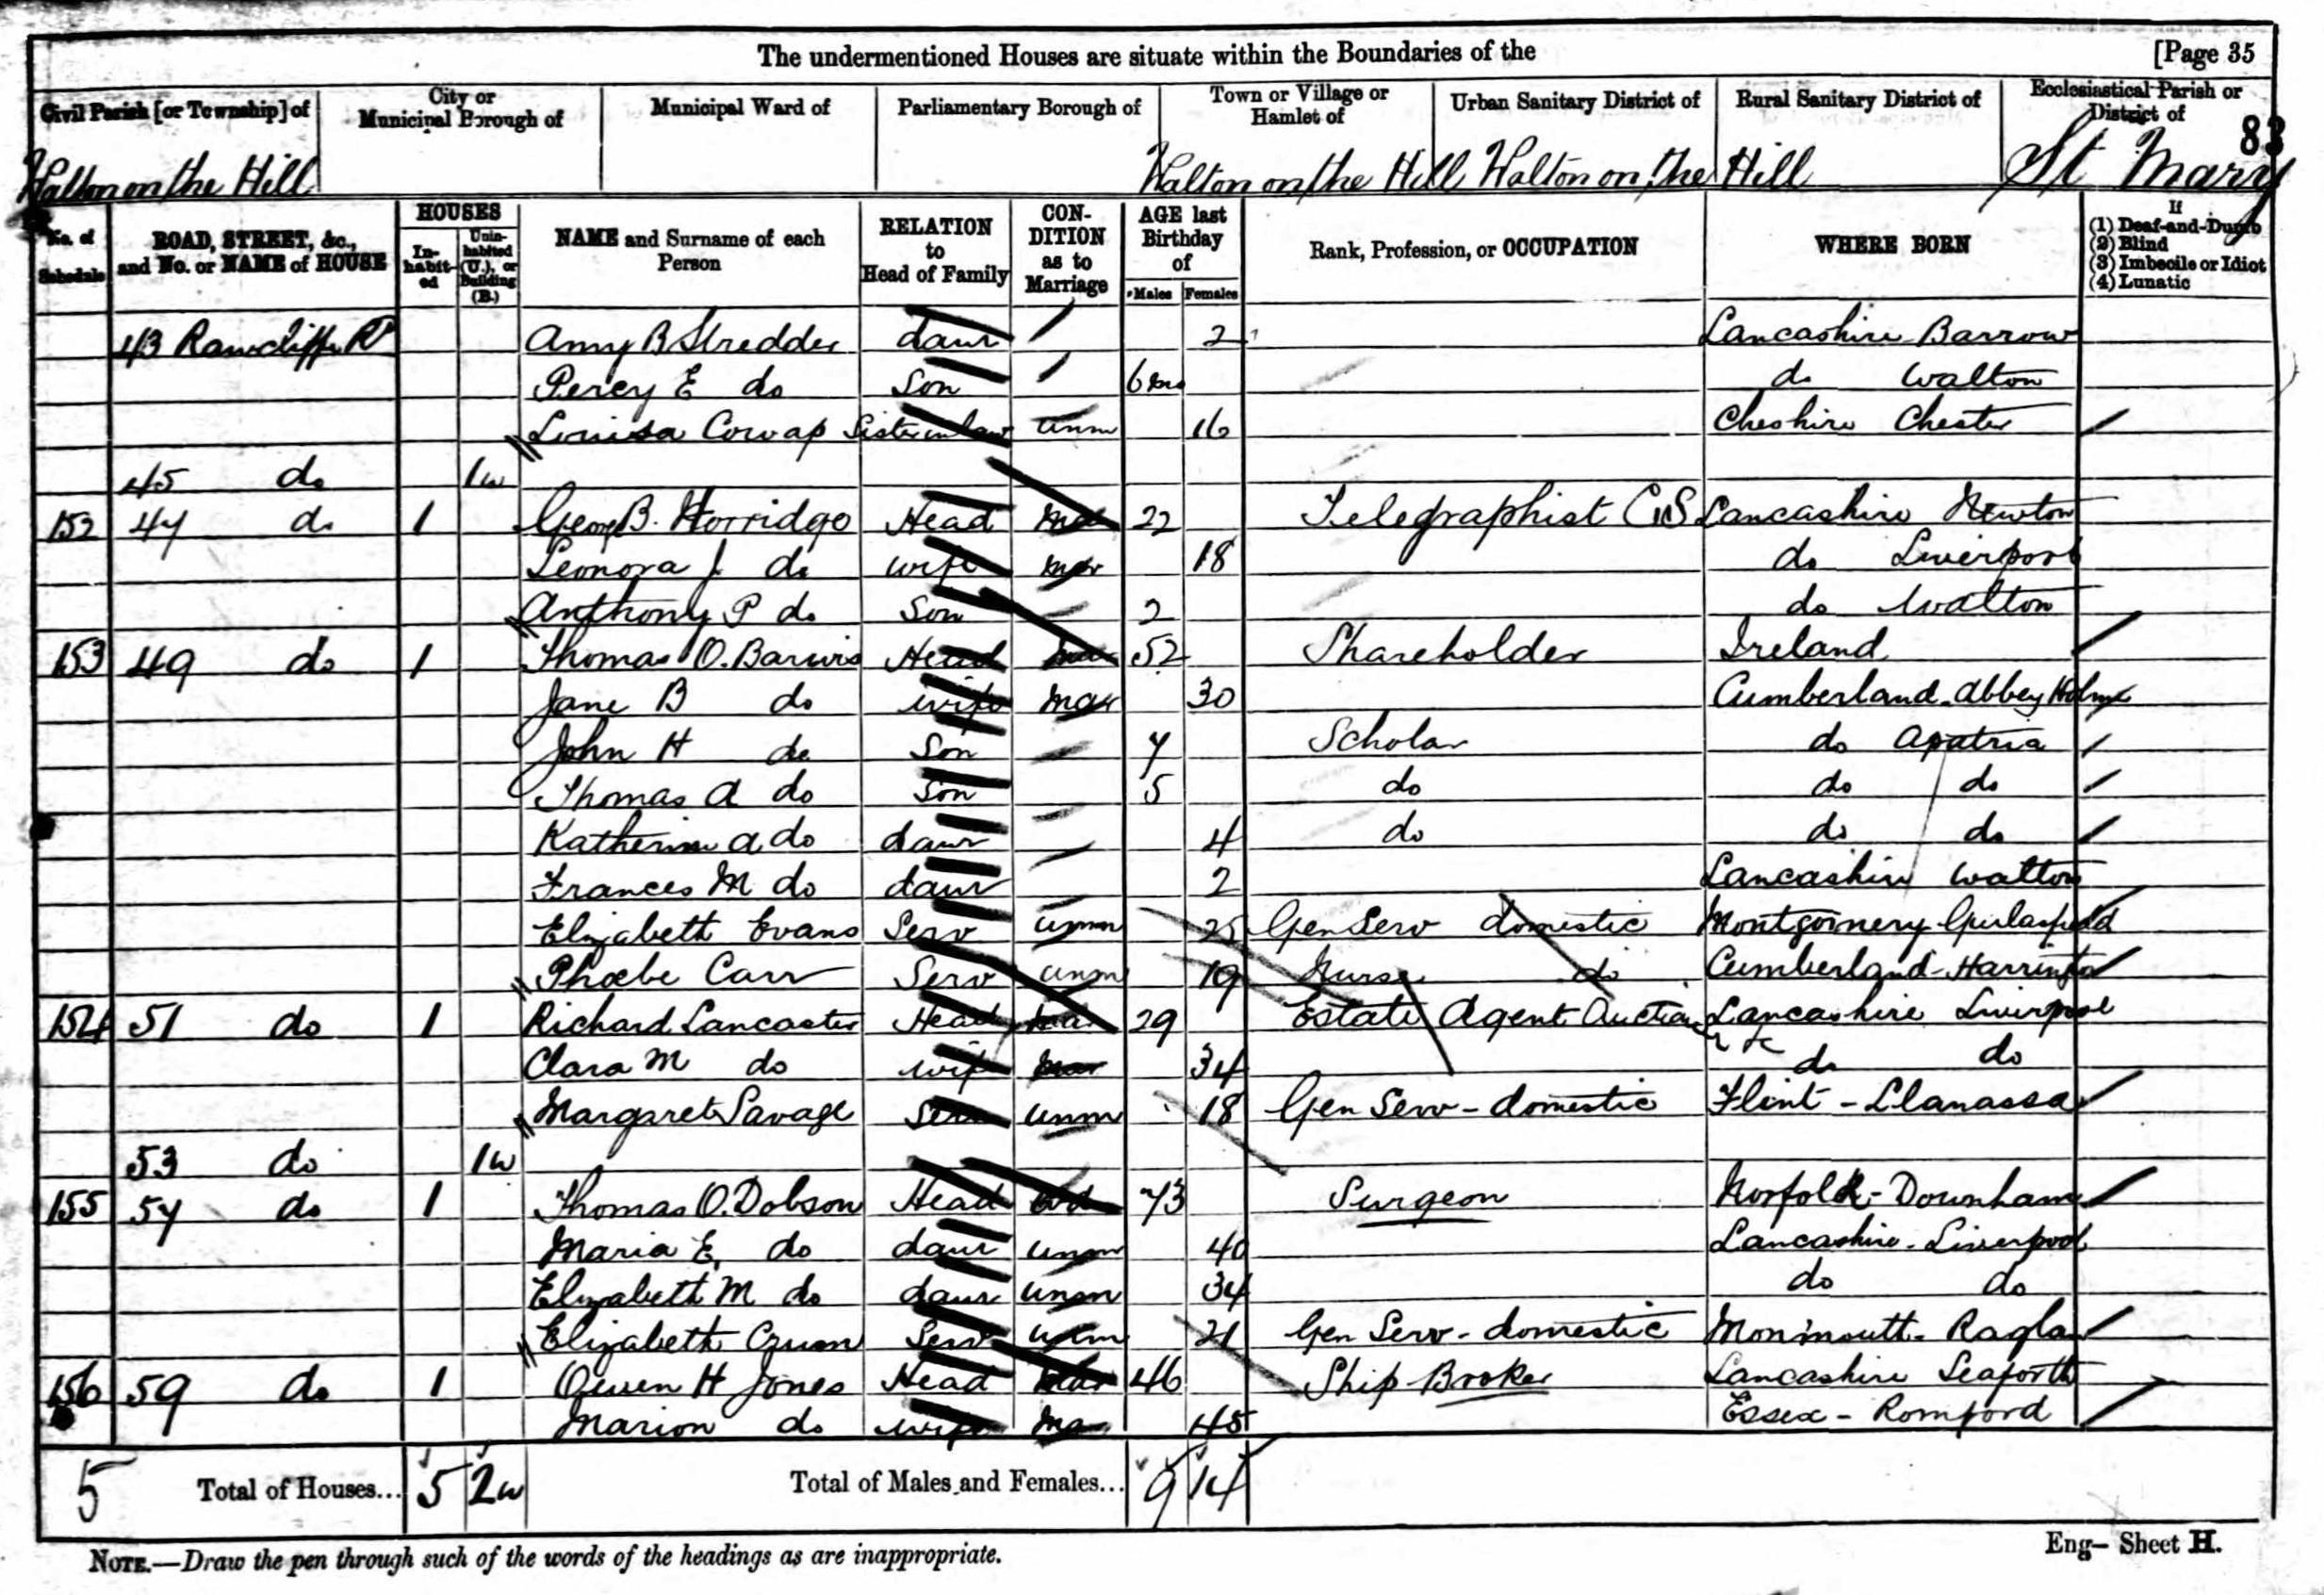 The undermentioned Houses are situate within the Boundaries of the [Page 35
Civil Parish [or Township] of City or Municipal Borough of Municipal Ward of Parliamentary Borough of Town or Village or Hamlet of Urban Sanitary District of Rural Sanitary District of Ecclesiastical Parish or District of
83
Walton on the Hill Walton on the Hill Walton on the Hill St Mary
No. of Schedule ROAD, STREET, &c., and No. or NAME of HOUSE HOUSES Inhabited Uninhabited (U.), or Building (B.) NAME and Surname of each Person RELATION to Head of Family CONDITION as to Marriage AGE last Birthday of Males Females Rank, Profession, or OCCUPATION WHERE BORN If (1) Deaf-and-Dumb (2) Blind (3) Imbecile or Idiot (4) Lunatic
43 Rawcliffe Rd Amy B Stredder daur 2 Lancashire Barrow
Percy E do Son 6mo do Walton
Louisa Cowap Sister in law unm 16 Cheshire Chester
45 do 1w
152 47 do 1 George B. Horridge Head Mar 22 Telegraphist C.S Lancashire Newton
Leonora J do wife mar 18 do Liverpool
Anthony P do Son 2 do Walton
153 49 do 1 Thomas O. Barwis Head mar 52 Shareholder Ireland
Jane B do wife mar 30 Cumberland Abbey Holme
John H do Son 7 Scholar do Apatria
Thomas A do Son 5 do do do
Katherine A do daur 4 do do do
Frances M do daur 2 Lancashire Walton
Elizabeth Evans Serv unm 25 Gen Serv domestic Montgomery
Phoebe Carr Serv unm 19 Nurse do Cumberland - Harrington
154 51 do 1 Richard Lancaster Head mar 29 Estate Agent Auctioneer &c Lancashire Liverpool
Clara M do wife mar 34 do do
Margaret Savage Serv unm 18 Gen Serv - domestic Flint - Llanassa
53 do 1w
155 57 do 1 Thomas O. Dobson Head Wd 73 Surgeon Norfolk - Downham
Maria E. do daur unm 40 Lancashire - Liverpool
Elizabeth M do daur unm 34 do do
Elizabeth Crum Serv unm 21 Gen Serv - domestic Monmouth - Raglan
156 59 do 1 Owen H Jones Head Mar 46 Ship Broker Lancashire Seaforth
Marion do wife Mar 45 Essex - Romford
5 Total of Houses... 5 2w Total of Males and Females... 9 14
NOTE.—Draw the pen through such of the words of the headings as are inappropriate. Eng— Sheet H.